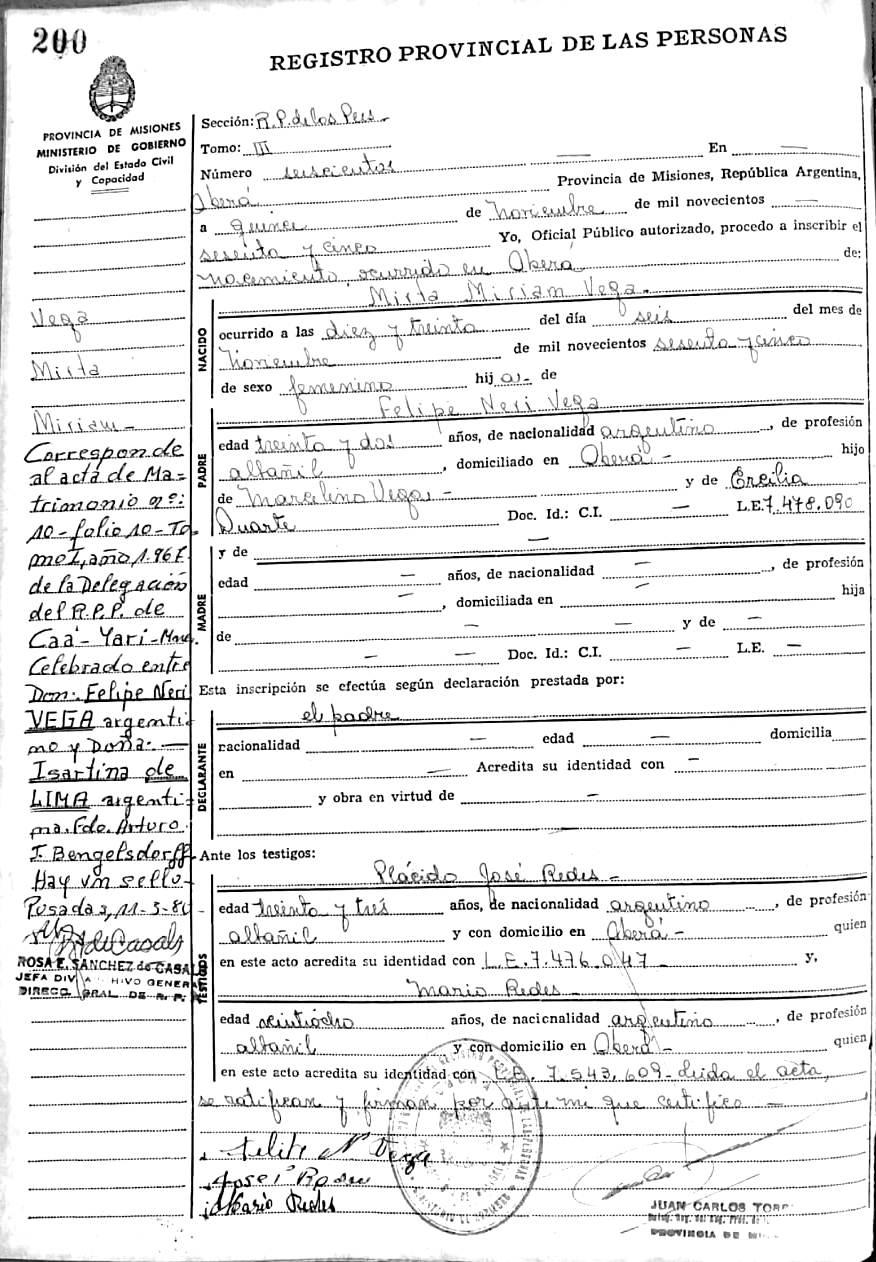 200
REGISTRO PROVINCIAL DE LAS PERSONAS
PROVINCIA DE MISIONES
MINISTERIO DE GOBIERNO
División del Estado Civil
y Capacidad
Sección: R.P. de los Pers
Tomo: III
Número seiscientos — En —
Oberá Provincia de Misiones, República Argentina,
a quince de Noviembre de mil novecientos —
sesenta y cinco Yo, Oficial Público autorizado, procedo a inscribir el
nacimiento ocurrido en Oberá de:
Mirta Miriam Vega.
NACIDO
ocurrido a las diez y treinta del día seis del mes de
Noviembre de mil novecientos sesenta y cinco
de sexo femenino hij a - de
Felipe Neri Vega
PADRE
edad treinta y dos años, de nacionalidad argentino, de profesión
albañil, domiciliado en Oberá - hijo
de Marcelino Vega - y de Ercilia
Duarte Doc. Id.: C.I. — L.E. 7.478.090
MADRE
y de —
edad — años, de nacionalidad —, de profesión
—, domiciliada en — hija
de — — y de —
— — Doc. Id.: C.I. — L.E. —
Esta inscripción se efectúa según declaración prestada por:
DECLARANTE
el padre
racionalidad — edad — domicilia
en — Acredita su identidad con —
y obra en virtud de —
Ante los testigos:
TESTIGOS
Plácido José Redes -
edad treinta y tres años, de nacionalidad argentino, de profesión
albañil y con domicilio en Oberá - quien
en este acto acredita su identidad con L.E. 7.476.047 y,
Mario Redes -
edad veintiocho años, de nacionalidad argentino, de profesión
albañil y con domicilio en Oberá - quien
en este acto acredita su identidad con L.E. 7.543.609 - Leida el acta,
se ratifican y firman por ante mi que certifico —
Felipe N Vega
José
Mario Redes
JUAN CARLOS
PROVINCIA DE
Vega
Mirta
Miriam -
Correspon de
al acta de Ma-
trimonio nº:
10 - folio 10 - To
mo I, año 1.967.
de la Delegación
del R.P.P. de
Caá - Yarí -
Celebrado entre
Don: Felipe Neri
VEGA argenti-
no y Doña: —
Isartina de
LIMA argenti-
na. Fdo. Arturo
J. Bengelsdorff
Hay un sello -
Posadas, 11-3-80 -
ROSA E. SANCHEZ de CASALS
JEFA DIV ARCHIVO GENERAL
DIRECC. GRAL. DE R. P.